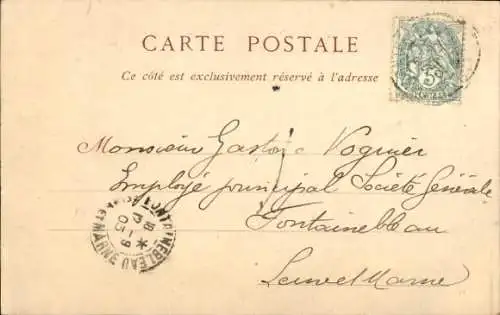 CARTE POSTALE
Ce côté est exclusivement réservé à l'adresse
5
Monsieur Gaston Vognier
Employé principal Société Générale
Fontainebleau
Seine et Marne
FONTAINEBLEAU
ET MARNE